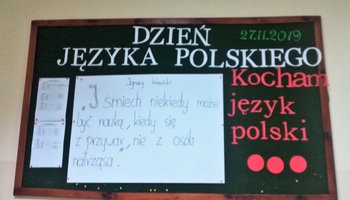 DZIEŃ
27.11.2019
JĘZYKA POLSKIEGO
Ignacy Krasicki
„I śmiech niekiedy może
być nauką, kiedy się
z przywar, nie z osób
natrząsa.
Kocham
język
polski